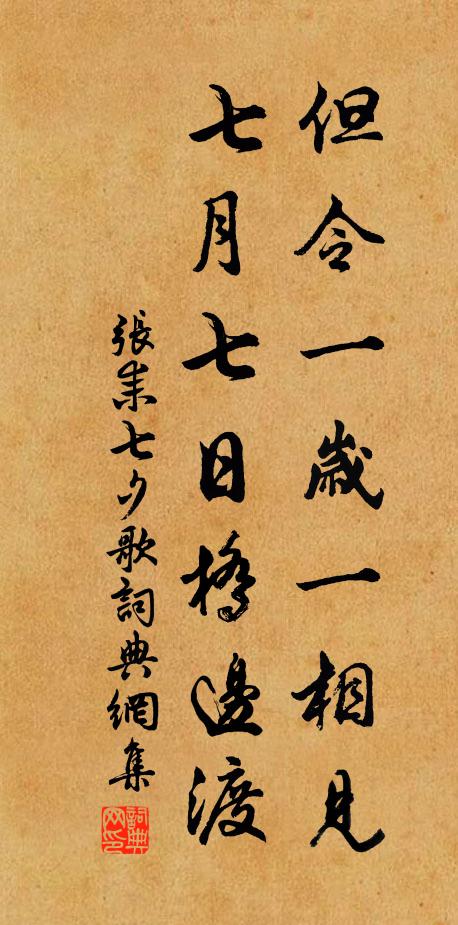 但令一歲一相見
七月七日橋邊渡
張耒七夕歌詞典網集
詞典网印